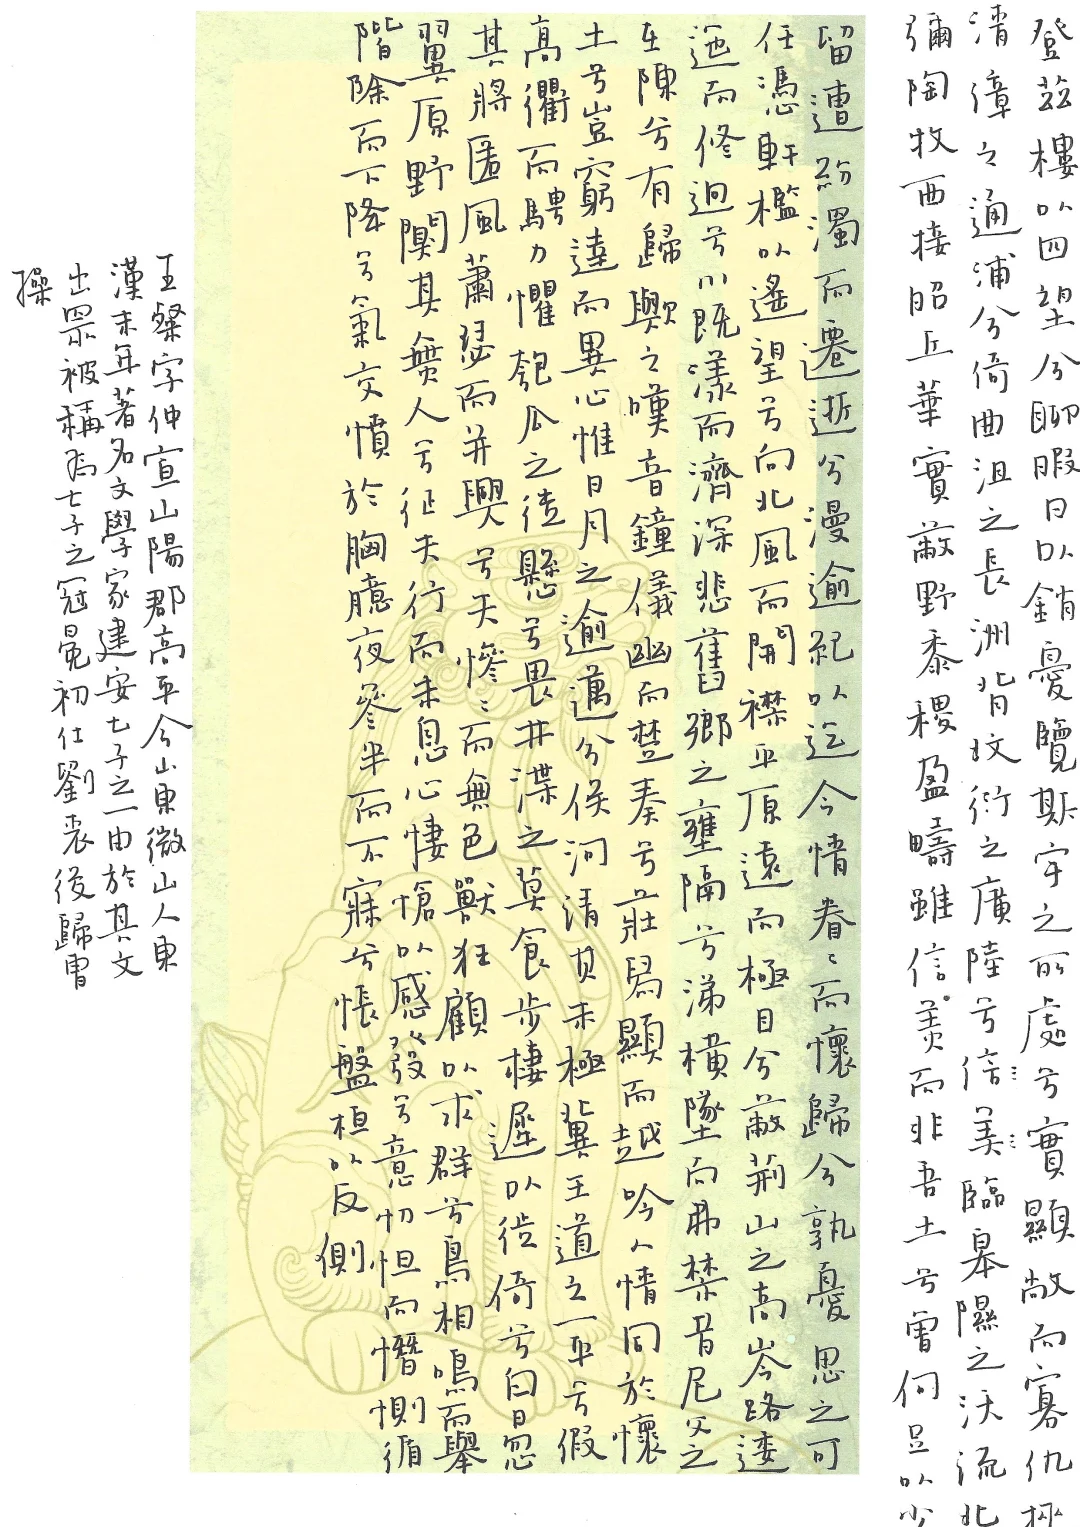 登茲樓以四望兮聊暇日以銷憂覽斯宇之所處兮實顯敞而寡仇挾
清漳之通浦兮倚曲沮之長洲背坟衍之廣陸兮信美臨皋隰之沃流北
彌陶牧西接昭丘華實蔽野黍稷盈疇雖信美而非吾土兮曾何足以少
留遭紛濁而遷逝兮漫逾紀以迄今情眷〻而懷歸兮孰憂思之可
任憑軒檻以遙望兮向北風而開襟平原遠而極目兮蔽荊山之高岑路逶
迤而修迥兮川既漾而濟深悲舊鄉之壅隔兮涕橫墜而弗禁昔尼父之
在陳兮有歸歟之嘆音鐘儀幽而楚奏兮莊舄顯而越吟人情同於懷
土兮豈窮達而異心惟日月之逾邁兮俟河清其未極冀王道之一平兮假
高衢而騁力懼匏瓜之徒懸兮畏井渫之莫食步棲遲以徙倚兮白日忽
其將匿風蕭瑟而并興兮天慘〻而無色獸狂顧以求群兮鳥相鳴而舉
翼原野闃其無人兮征夫行而未息心悽愴以感發兮意忉怛而憯惻循
階除而下降兮氣交憤於胸臆夜參半而不寐兮悵盤桓以反側
王粲字仲宣山陽郡高平今山東微山人東
漢末年著名文學家建安七子之一由於其文
出眾被稱為七子之冠冕初仕劉表後歸曹
操